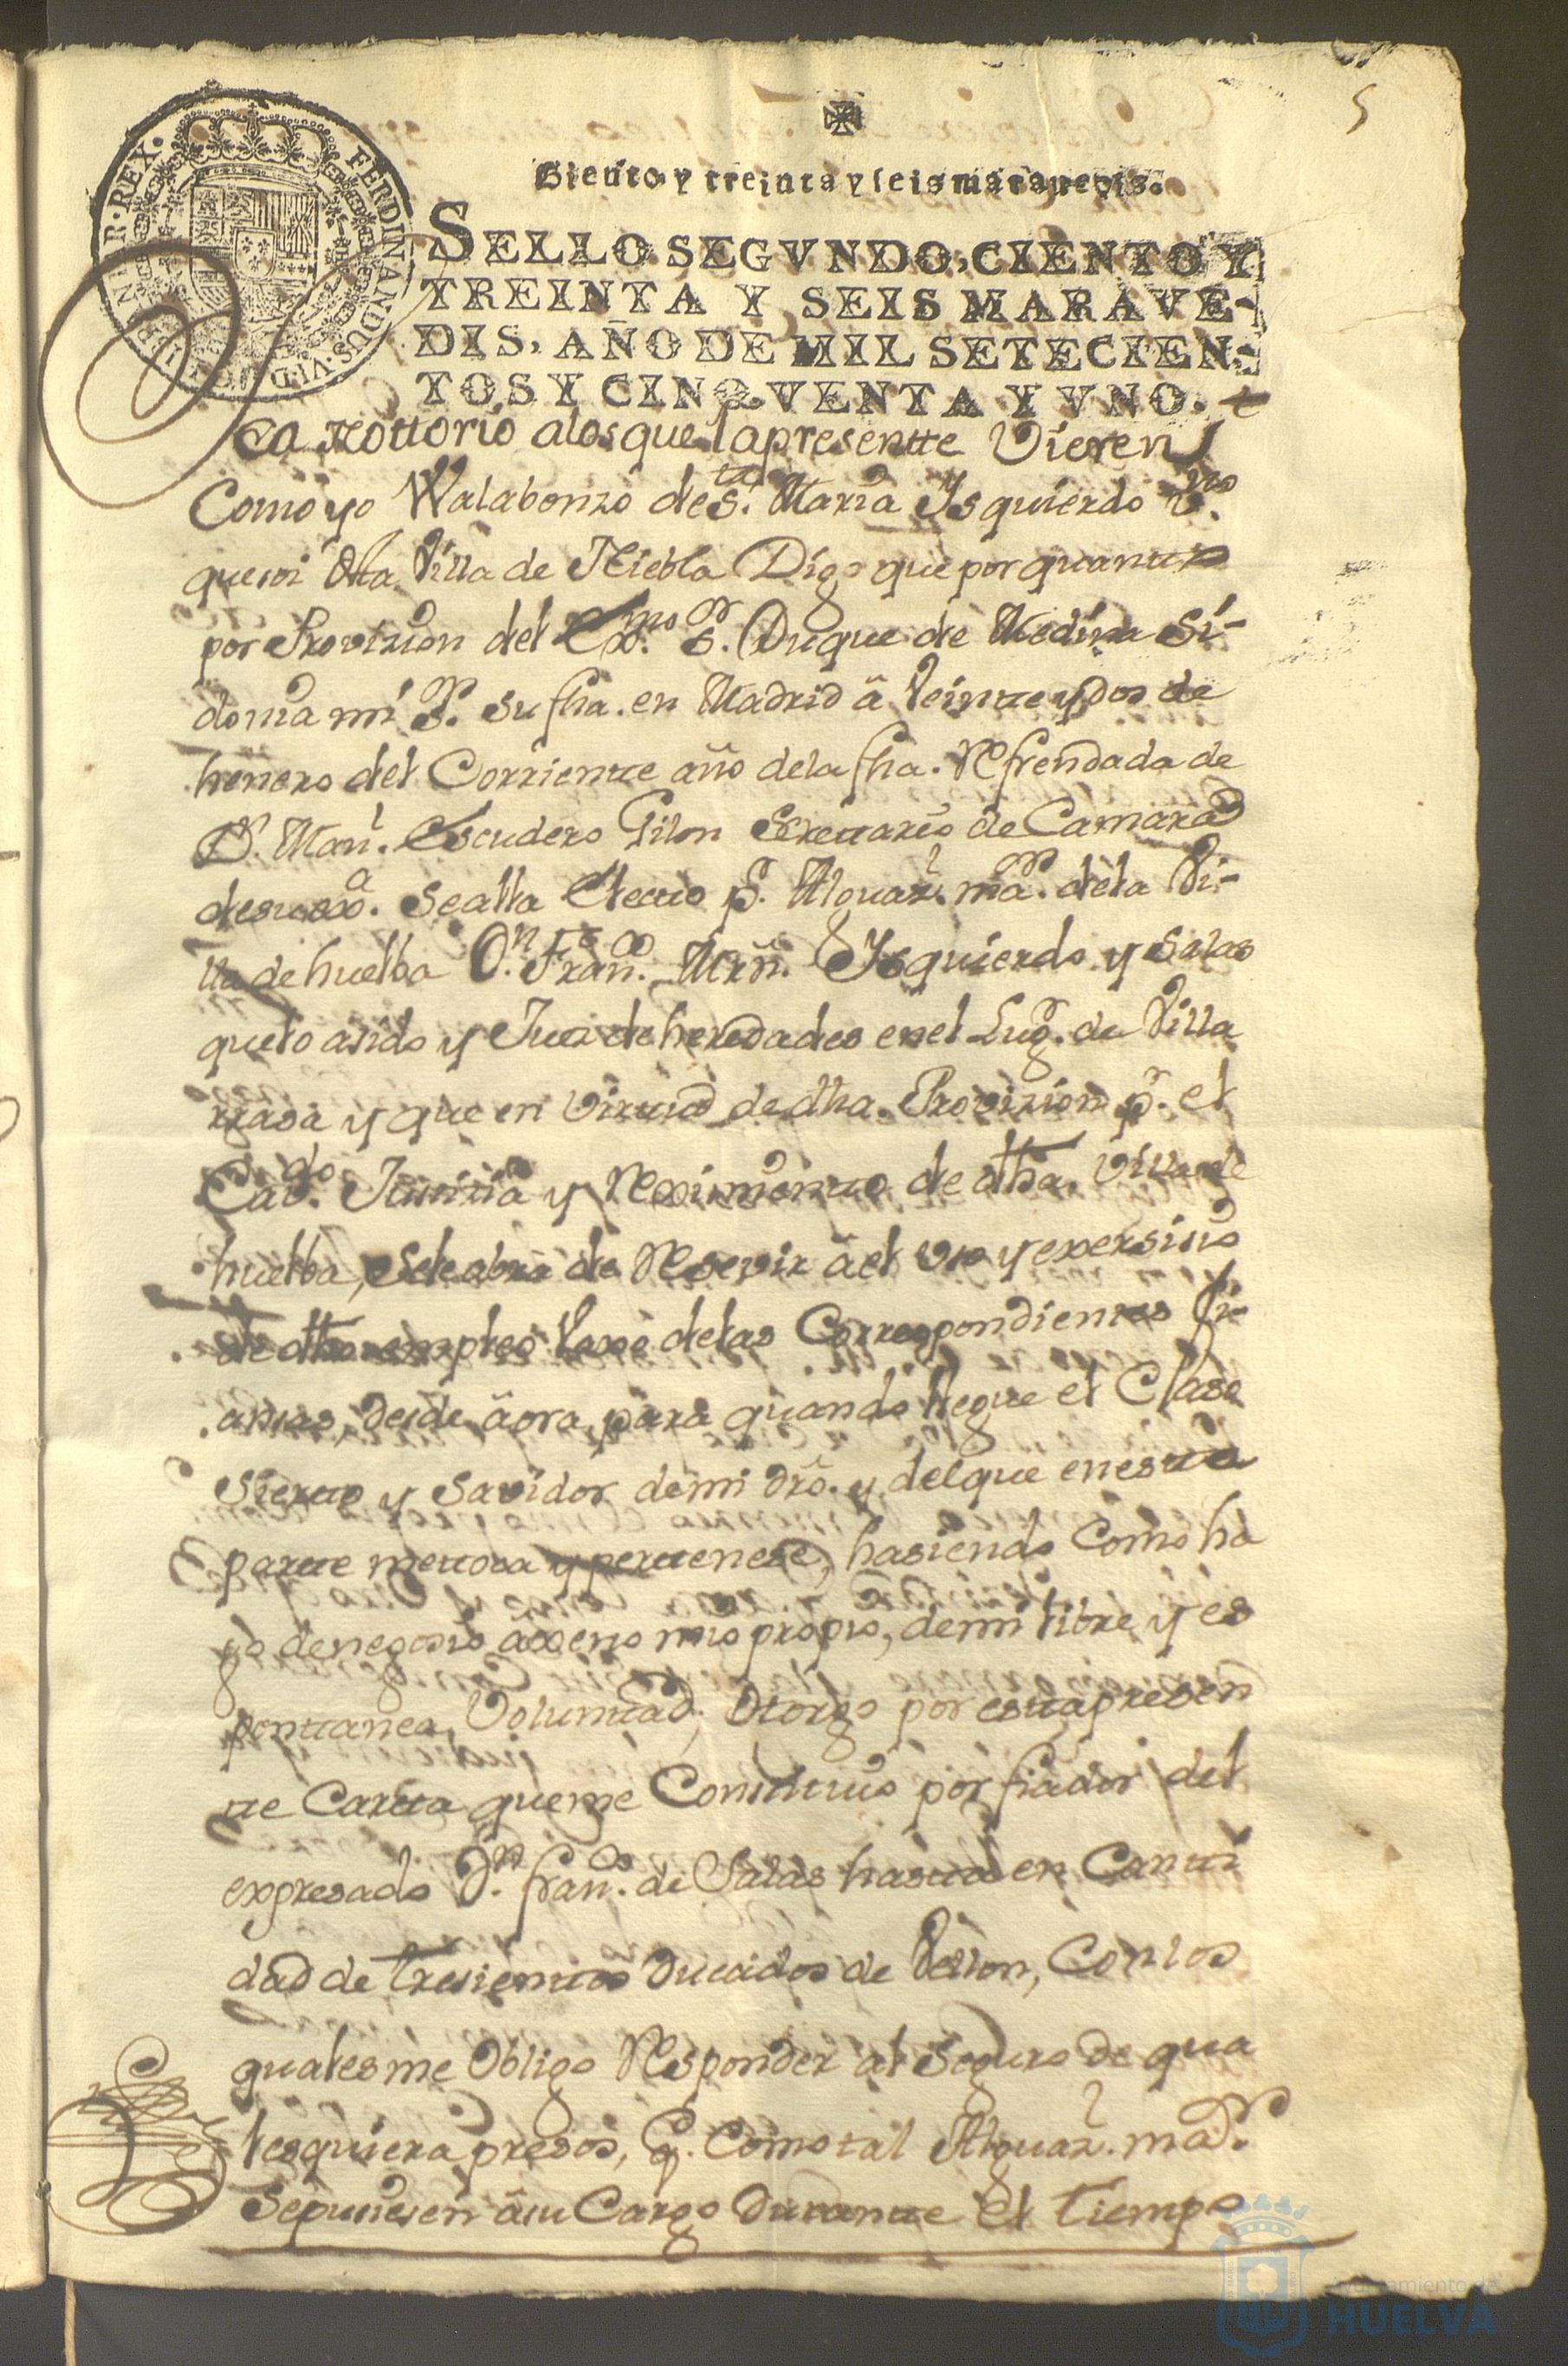 5
Ciento y treinta y seis maravedis.
SELLO SEGVNDO, CIENTO Y
TREINTA Y SEIS MARAVE-
DIS, AÑO DE MIL SETECIEN-
TOS Y CINQVENTA Y VNO.
FERDINANDUS·VI·D·G· HISPANIAR·REX·
Sea Nottorio alos que la presentte Vieren
Como yo Walabonzo de Sta. Maria Ysquierdo Vno.
que soi desta Villa de Niebla Digo que por quantto
por Provizion del Exmo. Sr. Duque de Medina Si-
donia mi Sr. su fha. en Madrid â Veintte y dos de
henero del Corrientte año dela fha. Refrendada de
Dn. Manl. Escudero Gilon Secrettario de Camara
de su exa. se alla Electto pr. Alguazl. mayr. dela Vi-
lla de huelba Dn. Franco. Mrñ. Ysquierdo y Salas
que lo asido y Juez de heredades en el Lugr. de Villa
rrasa y que en virttud de dha. Provizion pr. el
Cavdo. Justtizia y Reximientto de dha. Villa de
huelba, se le abra de Resevir âel vso y exersisio
de dho. empleo vaxo delas Correspondienttes fi-
ansas, desde âora para quando llegue el Caso
Siertto y Savidor demi dro. y del que en estta
partte me ttoca y perttenese, hasiendo Como ha
go de negosio axeno mio propio, demi libre y es
ponttanea Volunttad; Otorgo por estta presen
tte Cartta que me Consttittuio por fiador del
expresado Dn. Franco. de Salas hastta en Cantti
dad de tresienttos Ducados de Vellon, Con los
quales me Obligo Responder al seguro de qua
lesquiera presos, q. Como tal Alguazl. mayr.
se pusiesen âsu Cargo Durantte el tiempo
Ayuntamiento de
HUELVA